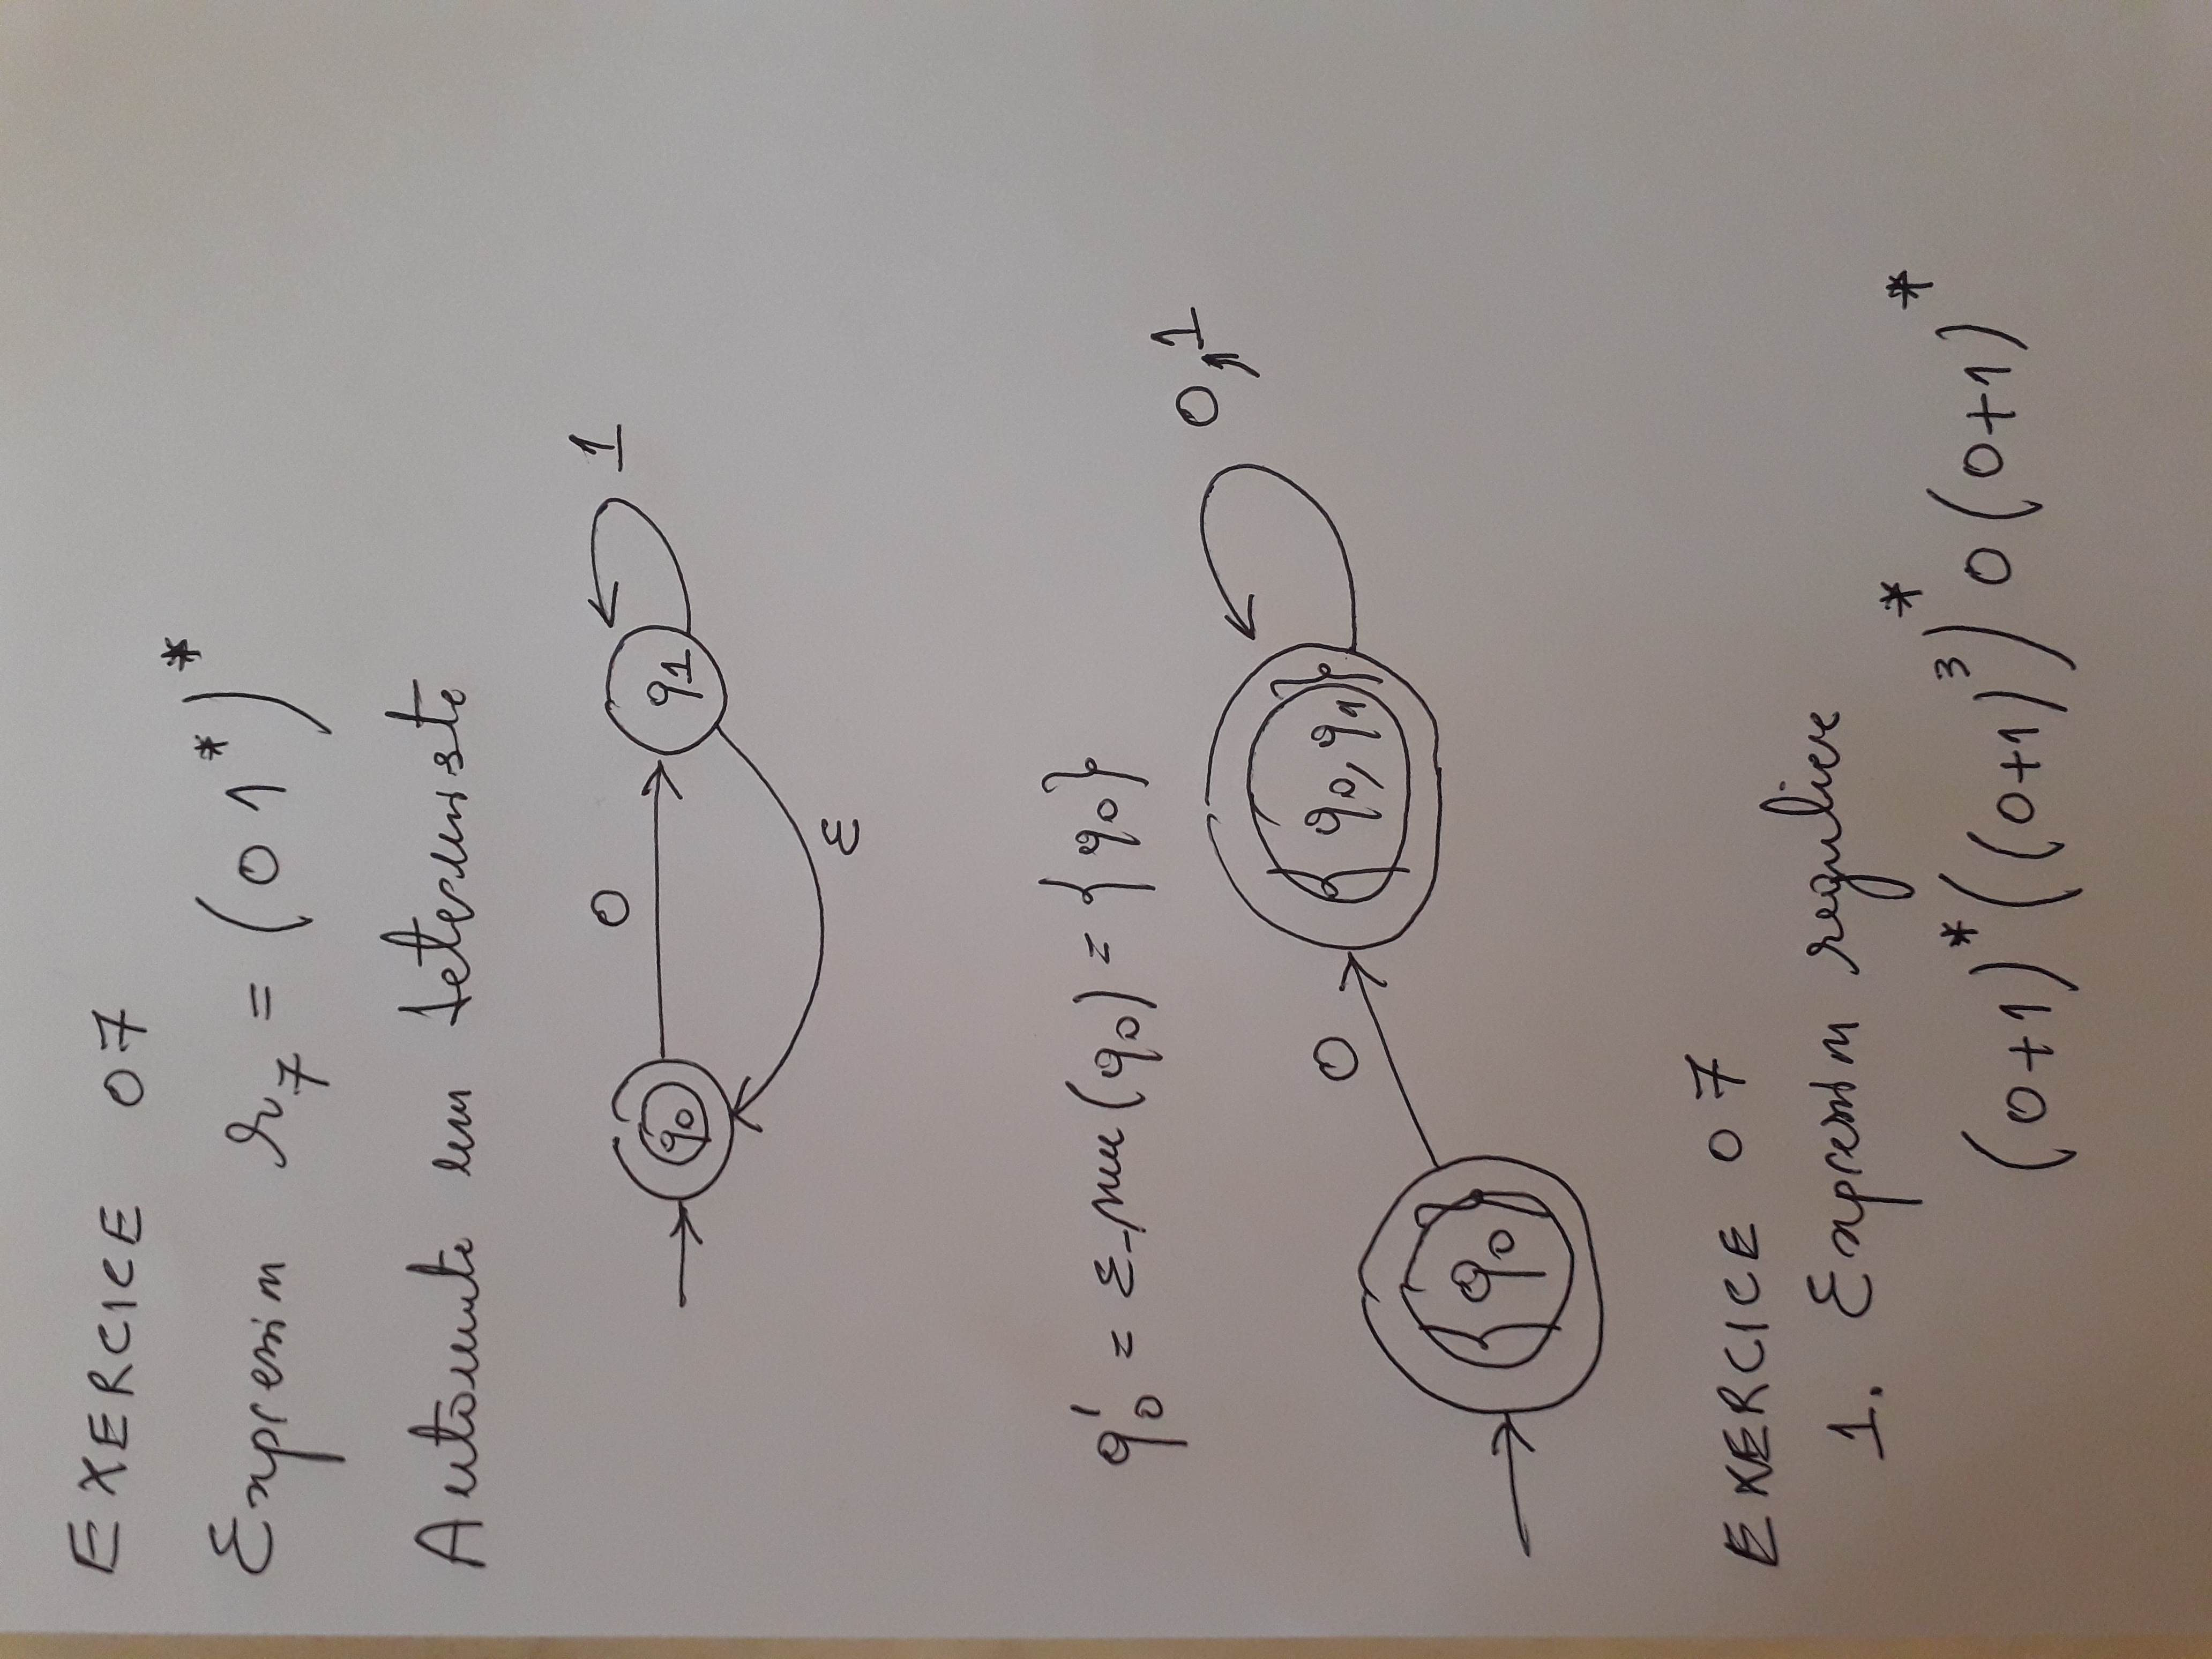 EXERCICE 07
Expression r₇ = (01*)*
Automate non déterministe
0
1
q0
q1
ε
q'0 = ε_ (q0) = {q0}
0,1
{q0, q1}
0
{q0}
EXERCICE 07
1. Expression reguliere
(0+1)*((0+1)³)*0(0+1)*